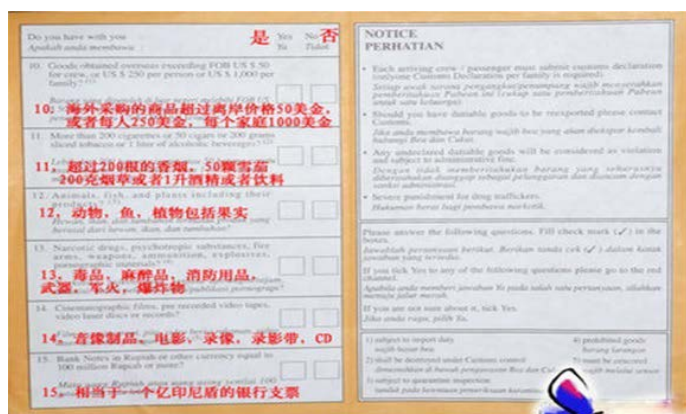 Do you have with you 是 Yes No 否
Apakah anda membawa : Ya Tidak
10. Goods obtained overseas exceeding FOB US $ 50
for crew, or US $ 250 per person or US $ 1,000 per
family?
10，海外采购的商品超过离岸价格50美金，
或者每人250美金，每个家庭1000美金
11. More than 200 cigarettes or 50 cigars or 200 grams
sliced tobacco or 1 liter of alcoholic beverages?
11，超过200根的香烟，50颗雪茄
200克烟草或者1升酒精或者饮料
12. Animals, fish, and plants including their
products?
12，动物，鱼，植物包括果实
berasal dari hewan, ikan, dan tumbuhan?
13. Narcotic drugs, psychotropic substances, fire
arms, weapons, ammunition, explosives,
pornographic materials?
13，毒品，麻醉品，消防用品，
武器，军火，爆炸物
14. Cinematographic films, pre recorded video tapes,
video laser discs or records?
14，音像制品，电影，录像，录影带，CD
15. Bank Notes in Rupiah or other currency equal to
100 million Rupiah or more?
15，相当于一个亿印尼盾的银行支票
NOTICE
PERHATIAN
• Each arriving crew / passenger must submit customs declaration
(onlyone Customs Declaration per family is required).
Setiap awak sarana pengangkut/penumpang wajib menyerahkan
pemberitahuan Pabean ini (cukup satu pemberitahuan Pabean
untuk satu keluarga).
• Should you have dutiable goods to be reexported please contact
Customs.
Jika anda membawa barang wajib bea yang akan diekspor kembali
hubungi Bea dan Cukai.
• Any undeclared dutiable goods will be considered as violation
and subject to administrative fine.
Dengan tidak memberitahukan barang yang seharusnya
diberitahukan dianggap sebagai pelanggaran dan diancam dengan
sanksi administrasi.
• Severe punishment for drug traffickers.
Hukuman berat bagi pembawa narkotik.
Please answer the following questions. Fill check mark (✓) in the
boxes.
Jawablah pertanyaan berikut. Berikan tanda cek (✓) dalam kotak
jawaban yang tersedia.
If you tick Yes to any of the following questions please go to the red
channel.
Apabila anda memberi jawaban Ya pada salah satu pertanyaan, silahkan
menuju jalur merah.
If you are not sure about it, tick Yes.
Jika anda ragu, pilih Ya.
1) subject to import duty
wajib bayar bea
2) shall be destroyed under Customs control
dimusnahkan di bawah pengawasan Bea dan Cukai
3) subject to quarantine inspection
4) prohibited goods
barang larangan
5) must be censored
wajib melalui sensor